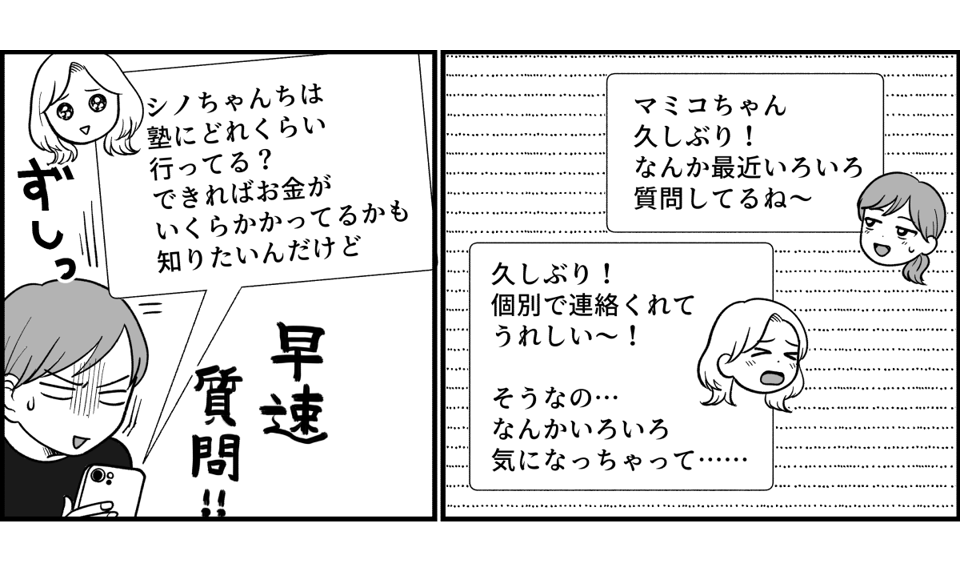 マミコちゃん
久しぶり！
なんか最近いろいろ
質問してるね〜
久しぶり！
個別で連絡くれて
うれしい〜！
そうなの…
なんかいろいろ
気になっちゃって……
シノちゃんちは
塾にどれくらい
行ってる？
できればお金が
いくらかかってるかも
知りたいんだけど
ずしっ
早速
質問!!